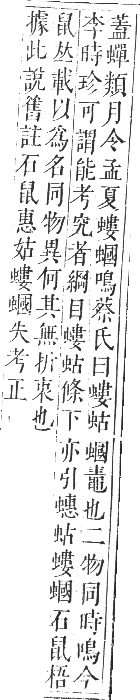 蓋蟬類月令孟夏螻蟈鳴蔡氏曰螻蛄蟈鼃也二物同時鳴今
李時珍可謂能考究者綱目螻蛄條下亦引蟪蛄螻蟈石鼠梧
鼠丛載以爲名同物異何其無折衷也
據此說舊註石鼠惠姑螻蟈失考正